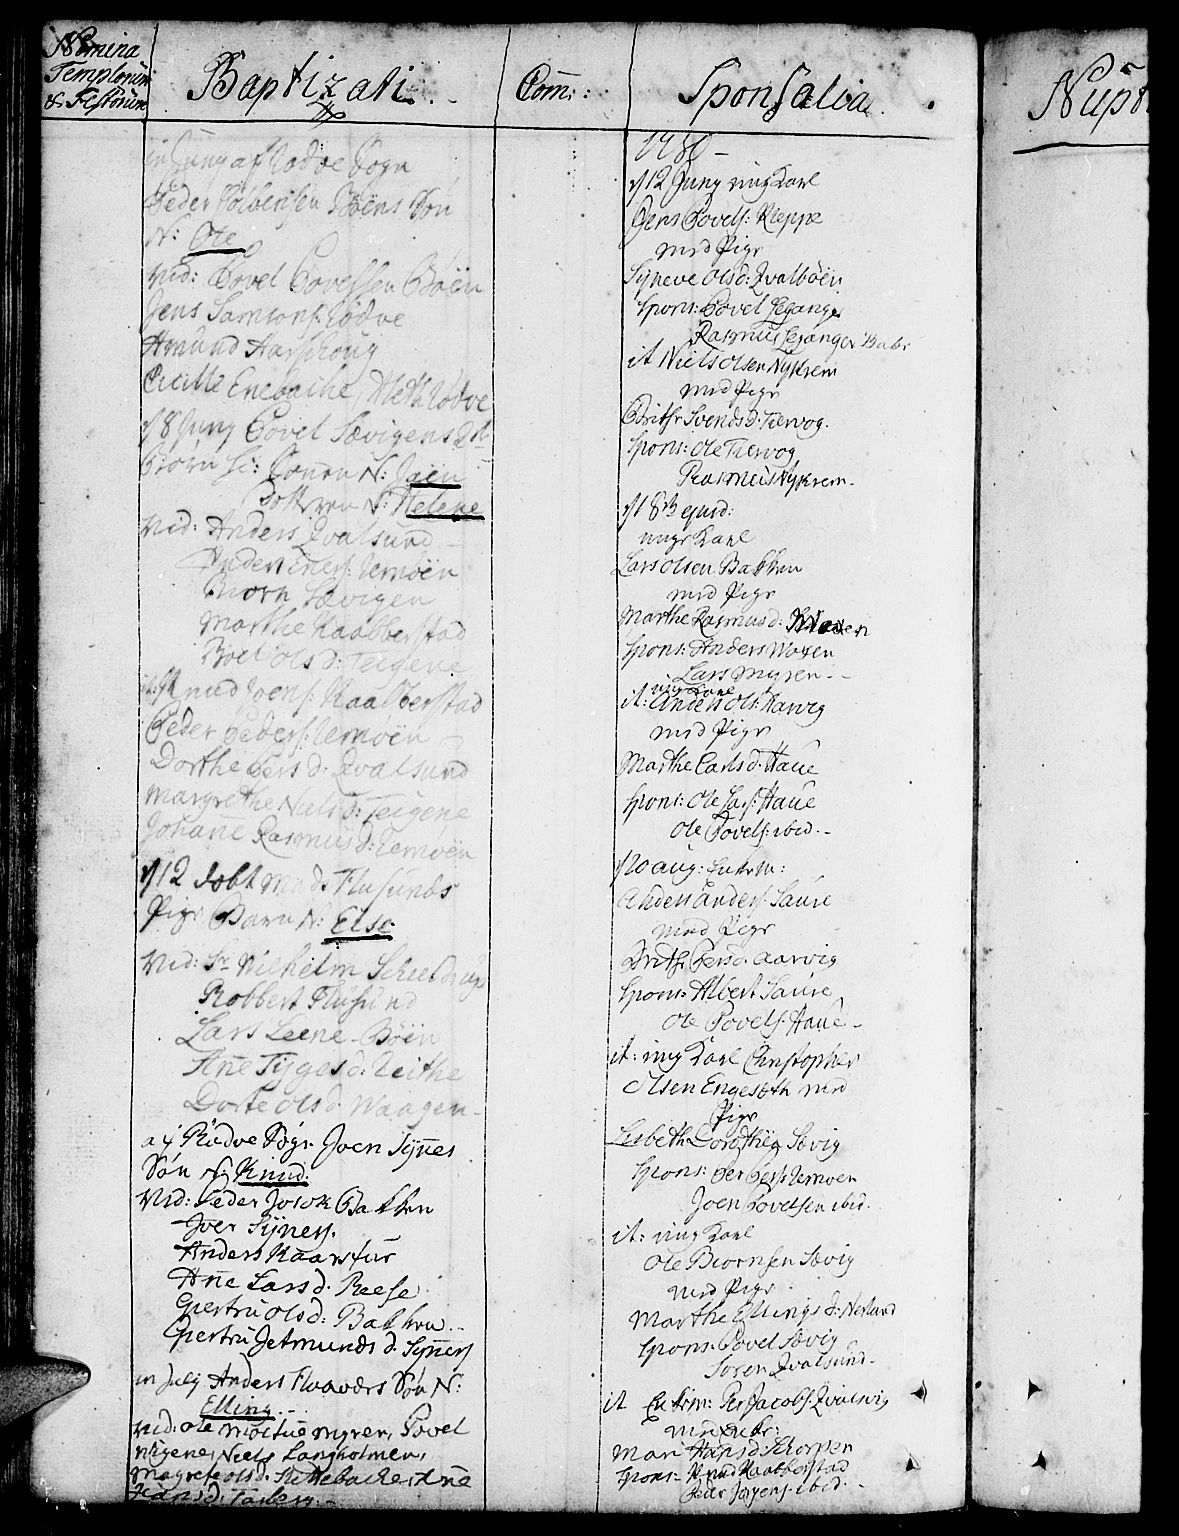 Nomina
Templorum
& Festorum
Baptizati
Com:
Sponsalia
Nupt
in Juny af Rødve Sogn
Peder Solbensen Bøens Søn
N: Ole
Vid: Povel Povelsen Bøen
Jens Samsons: Rødve
Amund Harschoug
Cicille Enebache, Meth Rødve
d 8 Juny Povel Sævigens
Børn N: Joen
Dotteren N: Helene
Vid: Anders Qvalsund
Anders Iversen Remøen
Biørn Sævigen
Marthe Raabberstad
Boel Ols d: Teigene
it: Knud Joens: Raabberstad
Peder Peders: Remøen
Dorthe Pers d: Qvalsund
Margrethe Niels d: Teigene
Johane Rasmus d: Remøen
d 12 Flusunds
Pige Barn N: Else
Vid: Sr Wilhelm
Robbert Flusund
Lars Leene-Bøen
Ane Tygges d: Leithe
Dorte Ols d: Waagen
af Rødve Sogn Joen Syners
Søn N: Knud:
Vid: Peder Josok Bakken
Iver Syners:
Anders Kaarstur
Ane Lars d: Reese
Giertru Ols d: Bakken
Giertru Jetmunds d: Syners
in July Anders Flaavers Søn N:
Elling
Vid: Ole Moltuemyren, Povel
Niels Langholmen,
Magrete Ols d: Ane
Hans d:
1780
d 12 Juny ung Karl
Jens Povels: Kleppe
med Pige
Synneve Ols d: Qvalbøen
Spons: Povel Leganger
Rasmus Leganger
it Niels Olsen Nykrem
med Pige
Brithe Svends d: Tiervog.
Spons: Ole Tiervog
Rasmus Nykrem.
d 18 ejusd:
unge Karl
Lars Olsen Bakken
med Pige
Marthe Rasmus d:
Spons: Anders Waxen
Lars Myren
ung Karl
it: Anders Ols: Aarvig
med Pige
Marthe Carls d: Haue
Spons: Ole Lars: Haue
Ole Povels: ibid.
d 20 aug: Enkem:
Anders Anders: Saure
med Pige
Brithe Pers d: Aarvig
Spons: Albert Saure
Ole Povels: Haue
it: ung Karl Christopher
Olsen Engeseth med
Pige
Lisbeth Dorothea Sævig
Spons: Per Pers: Remøen
Joen Povelsen ibid.
it: ung Karl
Ole Biørnsen Sævig
med Pige
Marthe Ellings d: Nerland
Spons: Povel Sævig
Soren Qvalsund
it Enkem: Per Jacobs: Qvalsvig
med Enke:
Mari Hans d: Skorpen
Spons: Knud Raabberstad
Peder Joens: ibid.